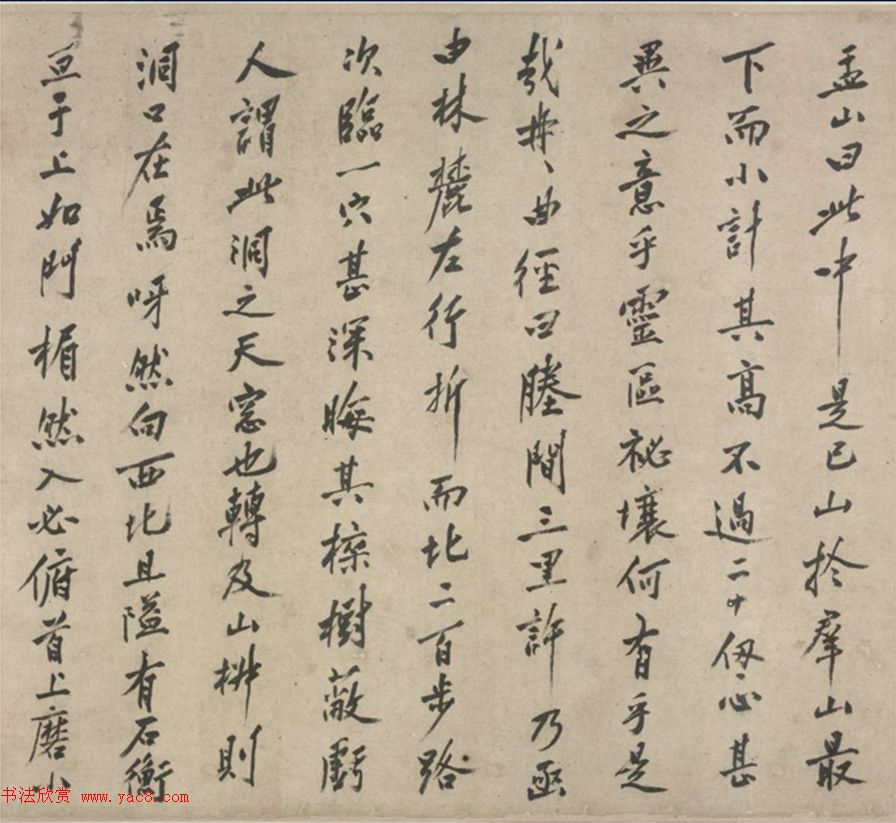 孟山曰此中是已山於羣山最
下而小計其高不過二十仞心甚
異之意乎靈區祕壤何有乎是
哉曲徑田塍間三里許乃亟
由林麓左行折而北二百步路
次臨一穴甚深晦其樹蔽虧
人謂此洞之天窓也轉及山椒則
洞口在焉呀然向西北且隘有石衡
亘于上如門楣然入必俯首上磨
书法欣赏 www.yac8.com